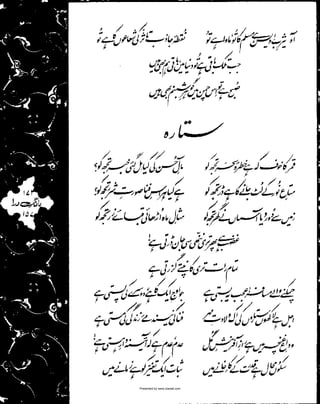 آہ یثرب! دیس ہے مسلم کا تو، ماوا ہے تو نقطۂ جاذب تاثر کی شعاعوں کا ہے تو
جب تلک باقی ہے تو دنیا میں، باقی ہم بھی ہیں
صبح ہے تو اس چمن میں گوہرِ شبنم بھی ہیں
ستارہ
قمر کا خوف کہ ہے خطرۂ سحر تجھ کو مآلِ حسن کی کیا مل گئی خبر تجھ کو؟
متاعِ نور کے لُٹ جانے کا ہے ڈر تجھ کو ہے کیا ہراسِ فنا صورتِ شرر تجھ کو؟
زمیں سے دور دیا آسماں نے گھر تجھ کو مثالِ ماہ اُڑھائی قبائے زر تجھ کو
غضب ہے پھر تری ننھی سی جان ڈرتی ہے!
تمام رات تری کانپتے گزرتی ہے
چمکنے والے مسافر! عجب یہ بستی ہے جو اوج ایک کا ہے، دوسرے کی پستی ہے
اجل ہے لاکھوں ستاروں کی اک ولادتِ مہر فنا کی نیند مےِ زندگی کی مستی ہے
وداعِ غنچہ میں ہے رازِ آفرینشِ گل عدم عدم ہے کہ آئینہ دارِ ہستی ہے!
سکوں محال ہے قدرت کے کارخانے میں ثبات ایک تغیر کو ہے زمانے میں
بانگِ درا
Presented by www.ziaraat.com